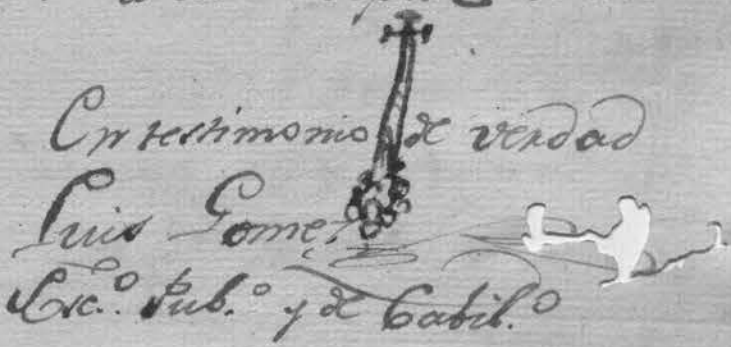 En testimonio de verdad
Luis Gomez
Esc.º Pub.º y de Cabil.º